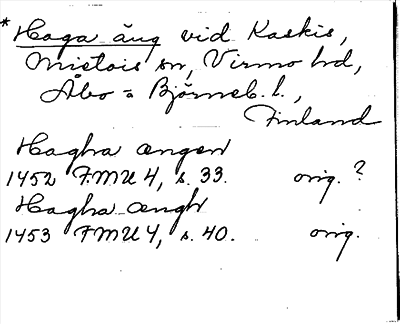 * Haga äng vid Kaskis,
Mietois sn, Virmo hd,
Åbo = Björneb. l.,
Finland
Hagha ængen
1452 FMU 4, s. 33. orig. ?
Hagha ængh
1453 FMU 4, s. 40. orig.